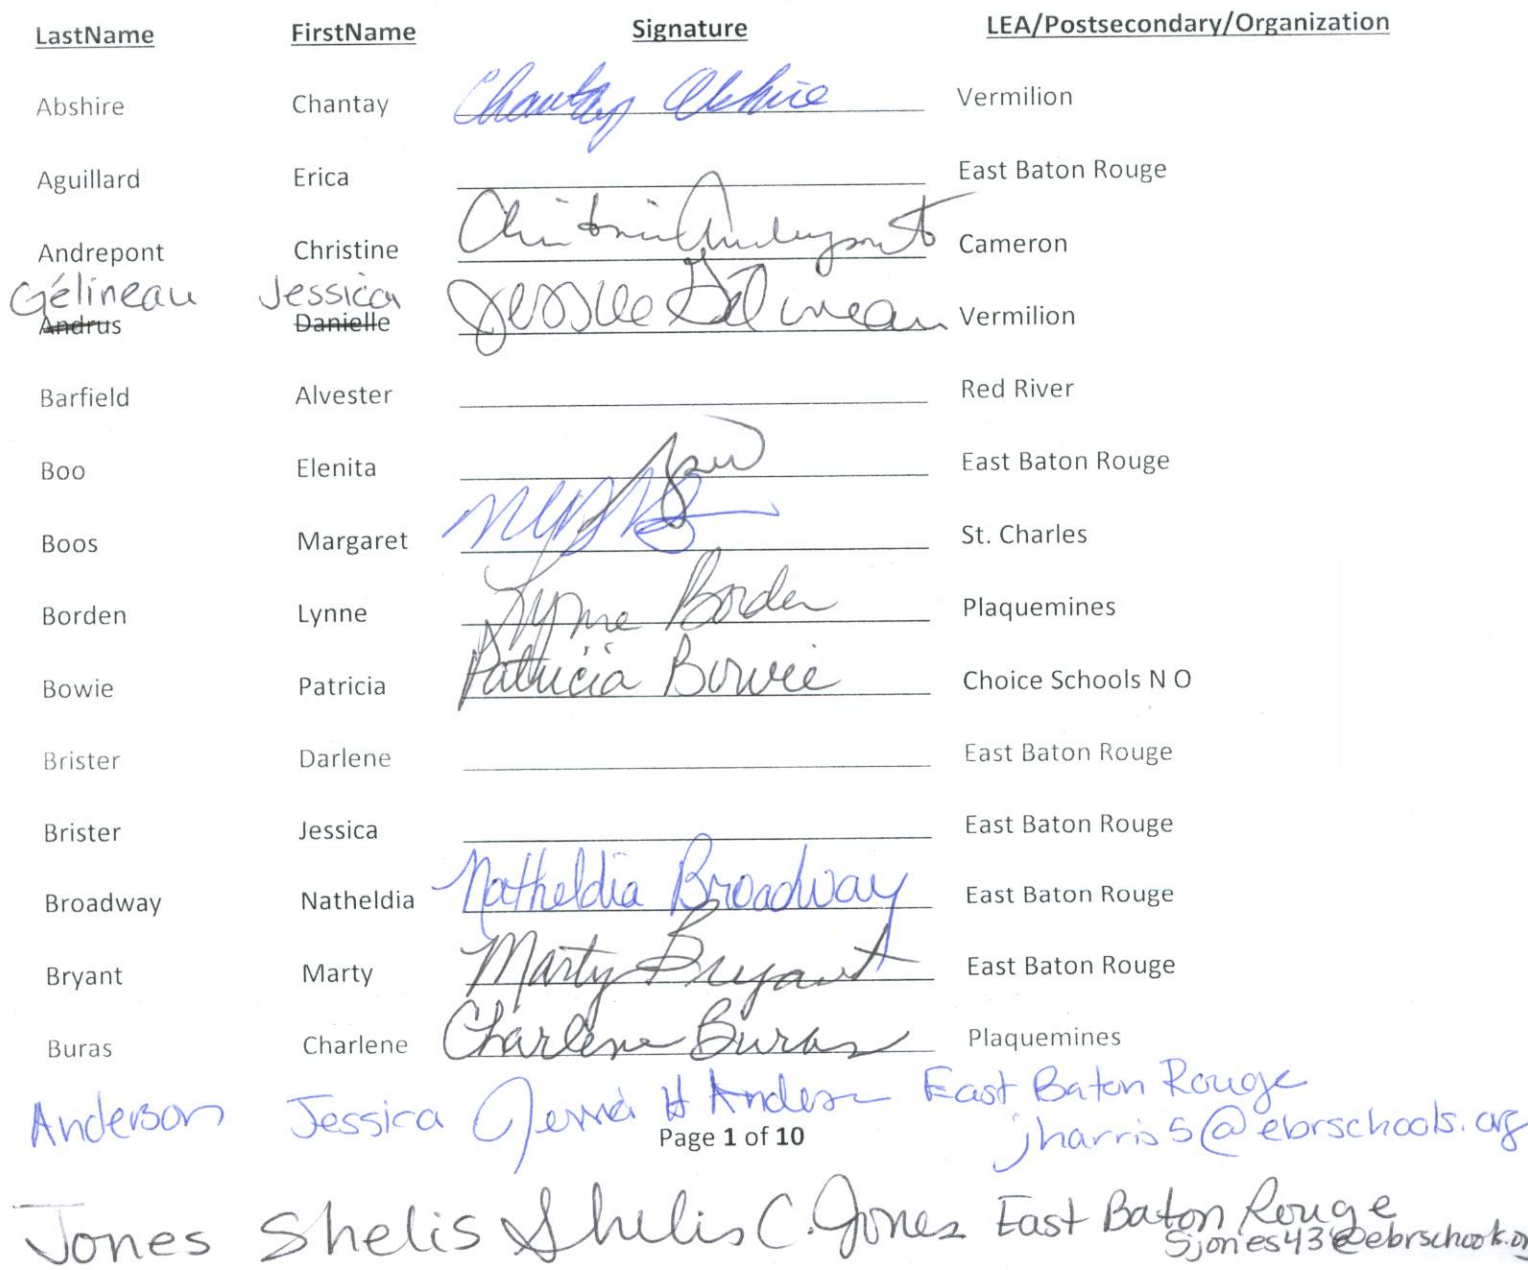 LastName FirstName Signature LEA/Postsecondary/Organization
Abshire Chantay Chantay Abshire Vermilion
Aguillard Erica East Baton Rouge
Andrepont Christine Christine Andrepont Cameron
Gélineau Jessica Jessica Gélineau
Andrus Danielle Vermilion
Barfield Alvester Red River
Boo Elenita East Baton Rouge
Boos Margaret St. Charles
Borden Lynne Lynne Borden Plaquemines
Bowie Patricia Patricia Bowie Choice Schools N O
Brister Darlene East Baton Rouge
Brister Jessica East Baton Rouge
Broadway Natheldia Natheldia Broadway East Baton Rouge
Bryant Marty Marty Bryant East Baton Rouge
Buras Charlene Charlene Buras Plaquemines
Anderson Jessica Jessica H Anderson East Baton Rouge
Page 1 of 10 jharris5@ebrschools.org
Jones Shelis Shelis C. Jones East Baton Rouge
Sjones43@ebrschools.or